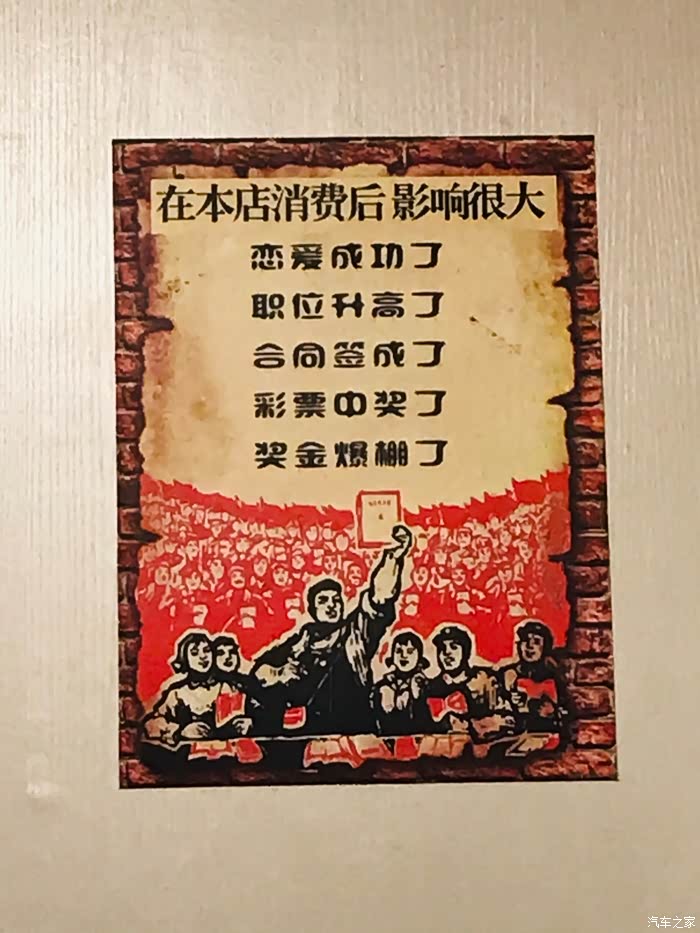 在本店消费后 影响很大
恋爱成功了
职位升高了
合同签成了
彩票中奖了
奖金爆棚了
汽车之家